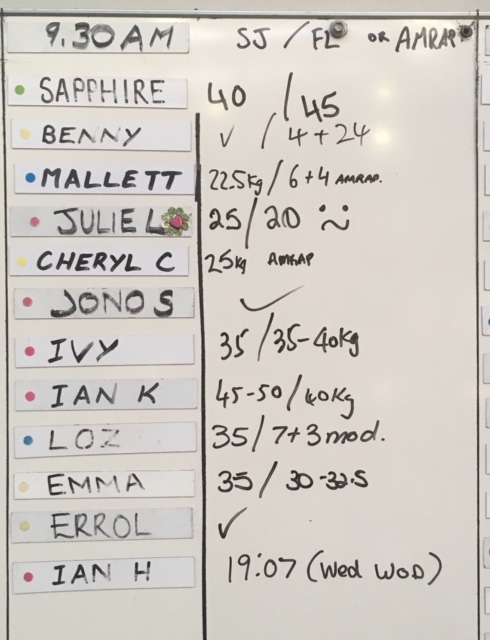 9.30AM SJ / FL OR AMRAP
SAPPHIRE 40 / 45
BENNY ✓ / 4 + 24
MALLETT 22.5kg / 6 + 4 AMRAP.
JULIE L 25 / 20
CHERYL C 25kg AMRAP
JONO S ✓
IVY 35 / 35-40kg
IAN K 45-50 / 40kg
LOZ 35 / 7+3 mod.
EMMA 35 / 30-32.5
ERROL ✓
IAN H 19:07 (Wed WOD)